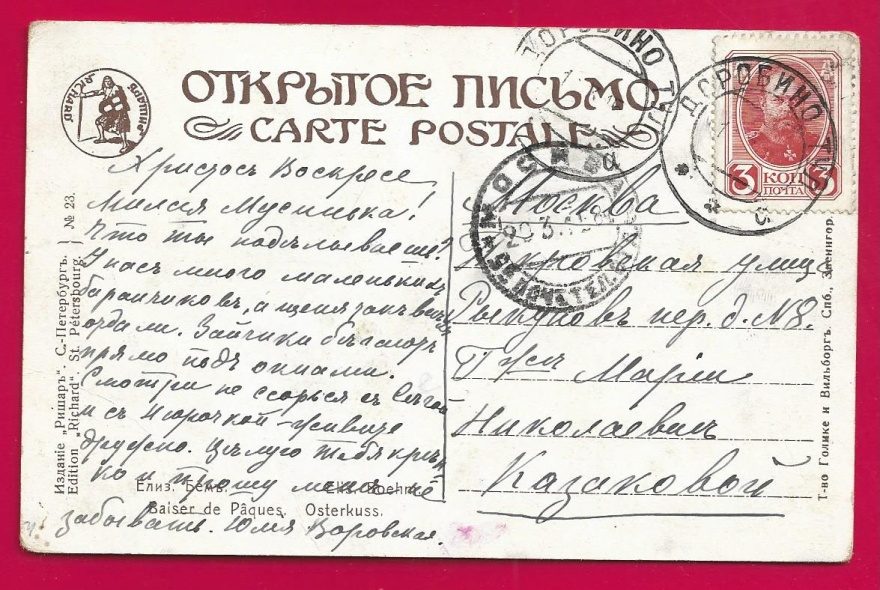 ОТКРЫТОЕ ПИСЬМО
CARTE POSTALE
"RICHARD"
"РИШАРЪ"
Христосъ Воскресе
Милая Мусинька!
Что ты подѣлываешь?
У насъ много маленькихъ
баранчиковъ, а щенятокъ
отдали. Зайчики бѣгаютъ
прямо подъ окнами.
Смотри не ссорься съ
и съ Нюрочкой - живите
дружно. Цѣлую тебя крѣп
ко и прошу меня не
забывать. Юлія Воровская.
Елиз. Бемъ. Elis. Boehm
Baiser de Pâques. Osterkuss.
Изданіе „Ришаръ". С.-Петербургъ.
Edition „Richard". St. Pétersbourg.
№ 23.
ДОРОБИНО ТУЛ
ДОРОБИНО ТУЛ
МОСКВА
20 3 15
3 КОП 3
ПОЧТА
Москва
Покровская улица
пер. д. №8.
Г-жѣ Маріи
Николаевнѣ
Казаковой
Т-во Голике и Вильборгъ. Спб., Звенигор.